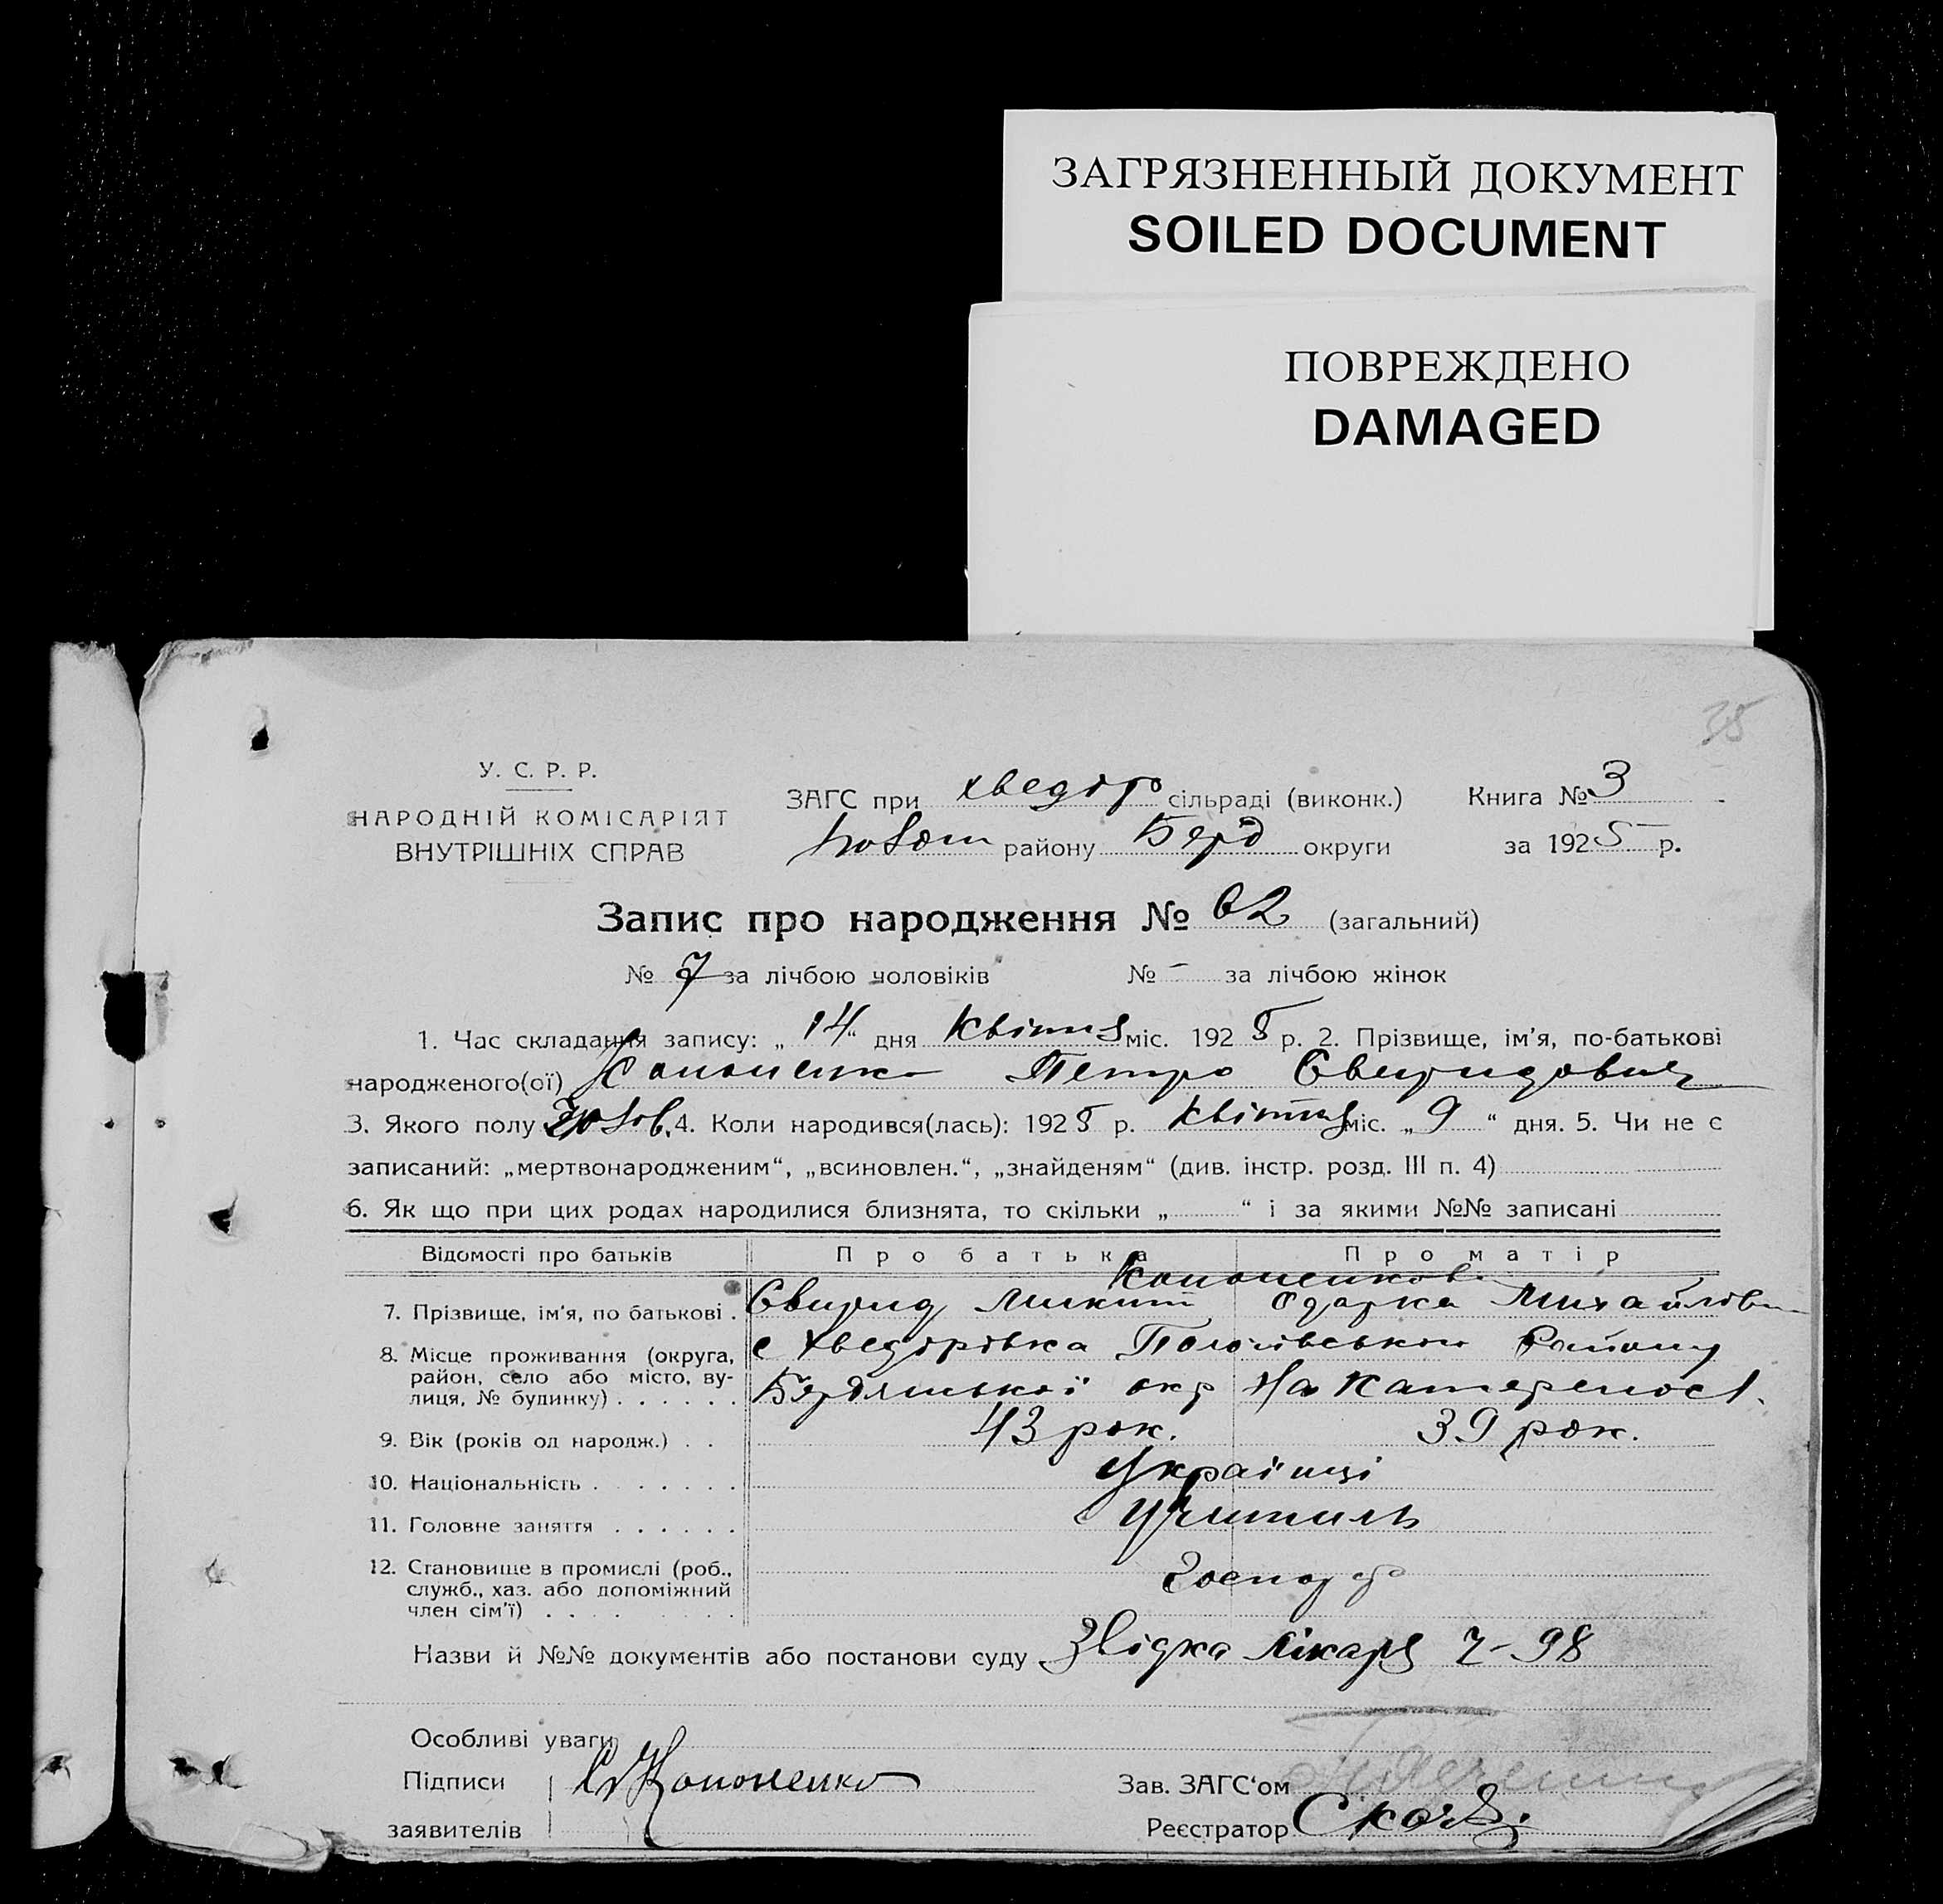 ЗАГРЯЗНЕННЫЙ ДОКУМЕНТ
SOILED DOCUMENT
ПОВРЕЖДЕНО
DAMAGED
38
У. С. Р. Р.
НАРОДНІЙ КОМІСАРІЯТ
ВНУТРІШНІХ СПРАВ
ЗАГС при хведоро сільраді (виконк.) Книга № 3
району Берд округи за 1925 р.
Запис про народження № 62 (загальний)
№ 7 за лічбою чоловіків № - за лічбою жінок
1. Час складання запису: „ 14 “ дня Квітня міс. 1925 р. 2. Прізвище, ім'я, по-батькові
народженого(ої) Кононенко Петро Свиридович
3. Якого полу 4. Коли народився(лась): 1925 р. Квітня міс. „ 9 “ дня. 5. Чи не є
записаний: „мертвонародженим“, „всиновлен.“, „знайденям“ (див. інстр. розд. III п. 4)
6. Як що при цих родах народилися близнята, то скільки „ “ і за якими №№ записані
Відомості про батьків Про батька Про матір
Кононенкові
7. Прізвище, ім'я, по батькові . Свирид Микит Одарка Михайлівн
8. Місце проживання (округа, район, село або місто, вулиця, № будинку) . . . . . . с Хведорівка Пологівського Району
Бердянської окр На
9. Вік (років од народж.) . . 43 рок. 39 рок.
10. Національність . . . . . . . Українці
11. Головне заняття . . . . . . Учитиль
12. Становище в промислі (роб., служб., хаз. або допоміжний член сім'ї) . . .
Назви й №№ документів або постанови суду Звідка лікаря 7-98
Особливі уваги
Підписи Св Кононенко Зав. ЗАГС‘ом
заявителів Реєстратор